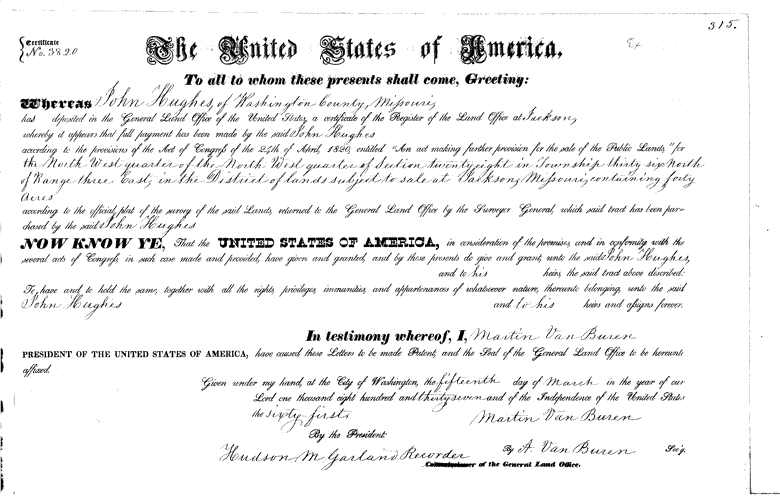 315.
Certificate
No. 3820
Ex
The United States of America,
To all to whom these presents shall come, Greeting:
Whereas John Hughes, of Washington County, Missouri,
has deposited in the General Land Office of the United States, a certificate of the Register of the Land Office at Jackson,
whereby it appears that full payment has been made by the said John Hughes
according to the provisions of the Act of Congress of the 24th of April, 1820, entitled "An act making further provision for the sale of the Public Lands," for
the North West quarter of the North West quarter of Section twenty eight in Township thirty six North
of Range three East, in the District of lands subject to sale at Jackson, Missouri, containing forty
Acres
according to the official plat of the survey of the said Lands, returned to the General Land Office by the Surveyor General, which said tract has been pur-
chased by the said John Hughes
NOW KNOW YE, That the UNITED STATES OF AMERICA, in consideration of the premises, and in conformity with the
several acts of Congress, in such case made and provided, have given and granted, and by these presents do give and grant, unto the said John Hughes,
and to his heirs, the said tract above described:
To have and to hold the same, together with all the rights, privileges, immunities, and appurtenances of whatsoever nature, thereunto belonging, unto the said
John Hughes and to his heirs and assigns forever.
In testimony whereof, I, Martin Van Buren
PRESIDENT OF THE UNITED STATES OF AMERICA, have caused these Letters to be made Patent, and the Seal of the General Land Office to be hereunto
affixed.
Given under my hand, at the City of Washington, the fifteenth day of March in the year of our
Lord one thousand eight hundred and thirty seven and of the Independence of the United States
the sixty first.
Martin Van Buren
By the President:
By A. Van Buren Sec'y.
Hudson M Garland Recorder of the General Land Office.